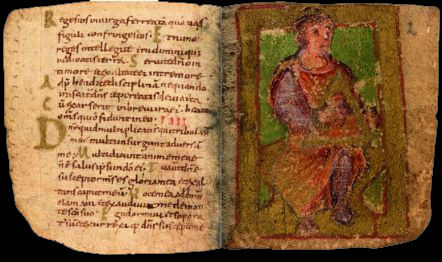 Regeseos in uirga ferrea quauas
figuli confringes eos Et nunc
reges intellegite erudimini qui
iudicatis terrã Seruite dno in
timore & exultate ei in tremore
Adprehendite disciplinã nequando
irascatur dns & pereatis de uia
Cũ exarserit in breui ira ei beati
oms qui confidunt in eo
Dne quid multiplicati sunt qui tribulant
me multi insurgunt aduersũ
me Multi dicunt anime meae
salus ipsi in do ei Tu autẽ dne
susceptor ms es gloria mea & exal
tans caput meũ Voce mea ad dnm
clamaui & exaudiuit me de monte
sco suo Ego dormiui & sopora
tus sũ & exurrexi qm dns suscepit me